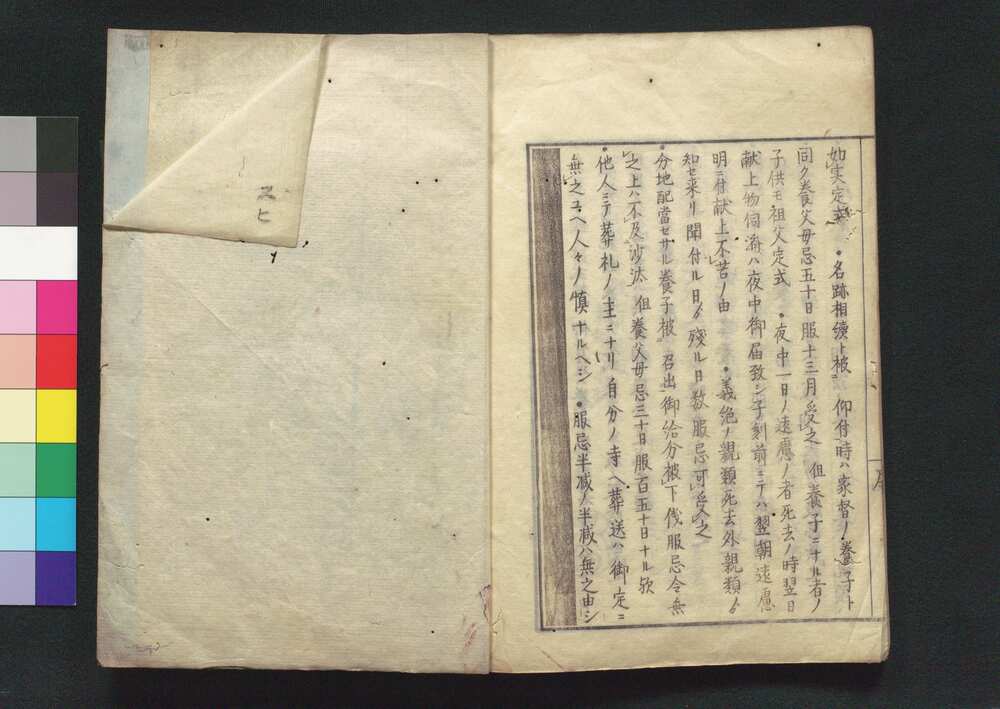 如実定式 ・名跡相續ト被 仰付時ハ家督ノ養子ト
同ク養父母忌五十日服十三月受之 但養子ニナル者ノ
子供モ祖父定式 ・夜中一日ノ遠慮ノ者死去ノ時翌日
献上物伺済ハ夜中御届致シ子ノ刻前ニテハ翌朝遠慮
明ニ付献上不苦ノ由 ・義絶ノ親類死去外親類ゟ
知セ来リ聞付ル日ゟ残ル日数服忌可受之
・分地配當セサル養子被 召出御給分被下侯服忌令無
之上ハ不及沙汰 但養父母忌三十日服百五十日ナル欤
・他人ニテ葬礼ノ主ニナリ自分ノ寺ヘ葬送ハ御定ニ
無之ユヘ人々ノ慎ナルヘシ ・服忌半减ノ半减ハ無之由シ
スヒ